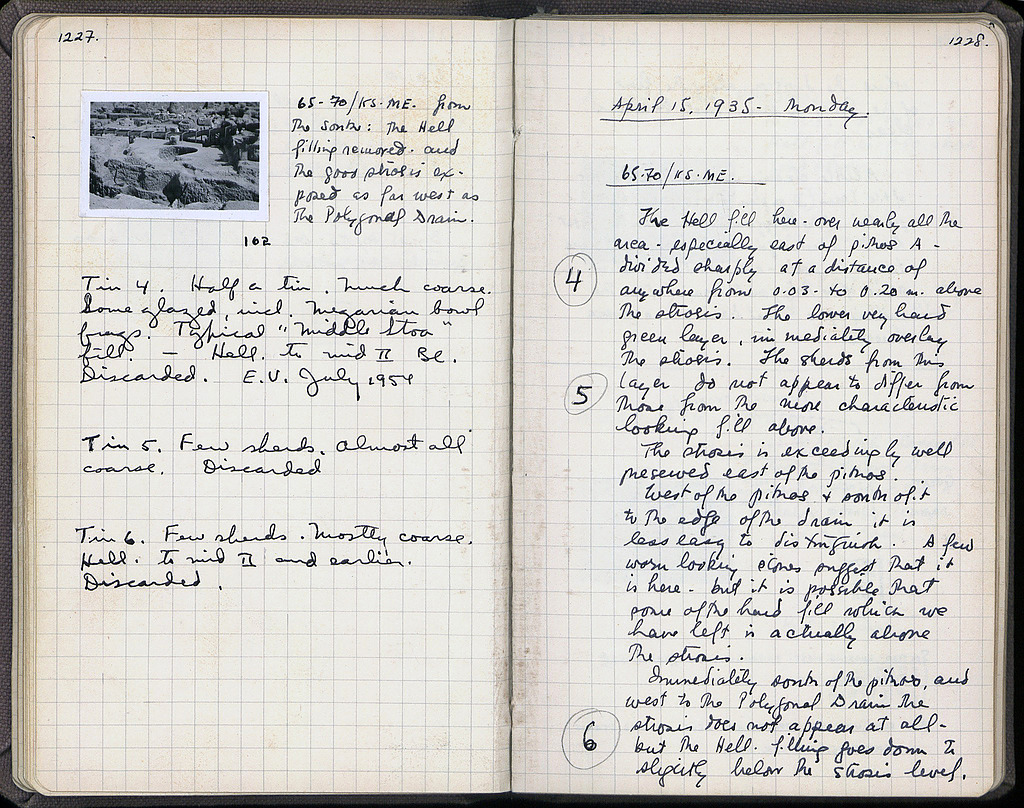 1227.
65-70/ΚΣ-ΜΕ. from
the South: the Hell
filling removed. and
the good strosis ex-
posed as far west as
the Polygonal Drain.
102
Tin 4. Half a tin. Much coarse.
Some glazed, incl. Megarian bowl
frags. Typical "Middle Stoa"
fill. – Hell. to mid II BC.
Discarded. E.V. July 1954
Tin 5. Few sherds. Almost all
coarse. Discarded
Tin 6. Few sherds. Mostly coarse.
Hell. to mid II and earlier.
Discarded.
1228.
April 15, 1935 - Monday.
65-70/ΚΣ-ΜΕ.
The Hell fill here - over nearly all the
area - especially east of pithos A -
4
divided sharply at a distance of
anywhere from 0.03 - to 0.20 m. above
the strosis. The lower very hard
green layer, immediately overlay
the strosis. The sherds from this
5
layer do not appear to differ from
those from the more characteristic
looking fill above.
The strosis is exceedingly well
preserved east of the pithos.
West of the pithos & south of it
to the edge of the drain it is
less easy to distinguish. A few
worn looking stones suggest that it
is here - but it is possible that
some of the hard fill which we
have left is actually above
the strosis.
Immediately south of the pithos, and
west to the Polygonal Drain the
6
strosis does not appear at all -
but the Hell. filling goes down to
slightly below the strosis level.